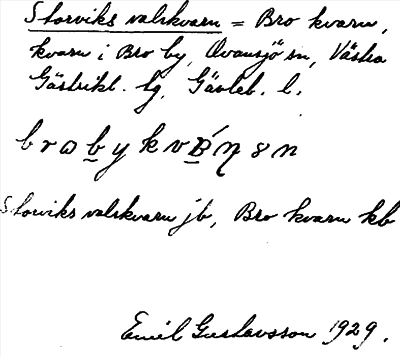 Storviks valskvarn = Bro kvarn,
kvarn i Bro by, Ovansjö sn, Västra
Gästrikl. hg, Gävleb. l.
Storviks valskvarn jb, Bro kvarn kb
Emil Gustavsson 1929.